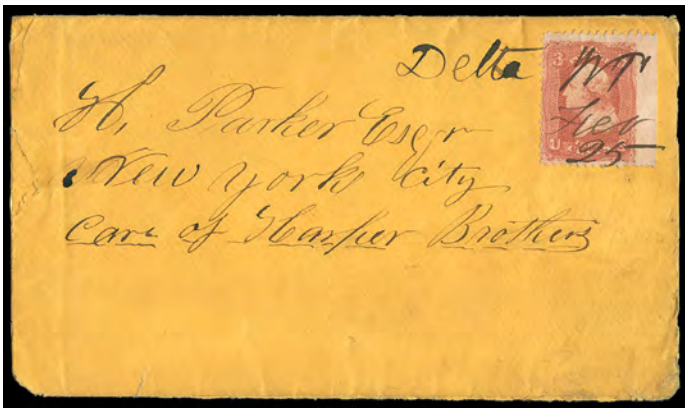 Delta WT
Feb
25
H. Parker Esqr
New York City
Care of Harper Brothers